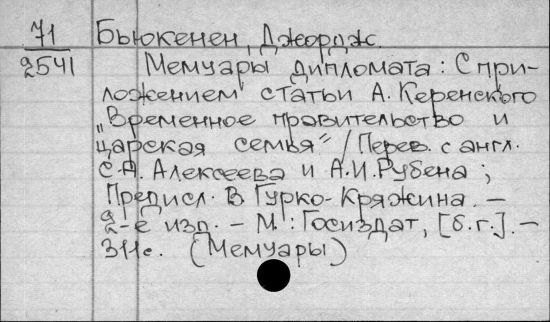 71 Бьюкенен, Джордж.
2541 Мемуары дипломата: С при-
ложением статьи А. Керенского
„Временное правительство и
царская семья" / Перев. с англ.
С.А. Алексеева и А.И. Рубена;
Предисл. В Гурко-Кряжина. –
2-е изд. – М.: Госиздат, [б.г.]. –
311с. (Мемуары)